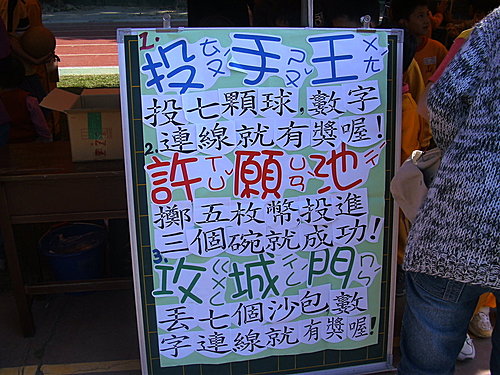 1. 投ㄊㄡˊ手ㄕㄡˇ王ㄨㄤˊ
投七顆球,數字
連線就有獎喔!
2. 許ㄒㄩˇ願ㄩㄢˋ池ㄔˊ
擲五枚幣,投進
三個碗就成功!
3. 攻ㄍㄨㄥ城ㄔㄥˊ門ㄇㄣˊ
丟七個沙包,數
字連線就有獎喔!